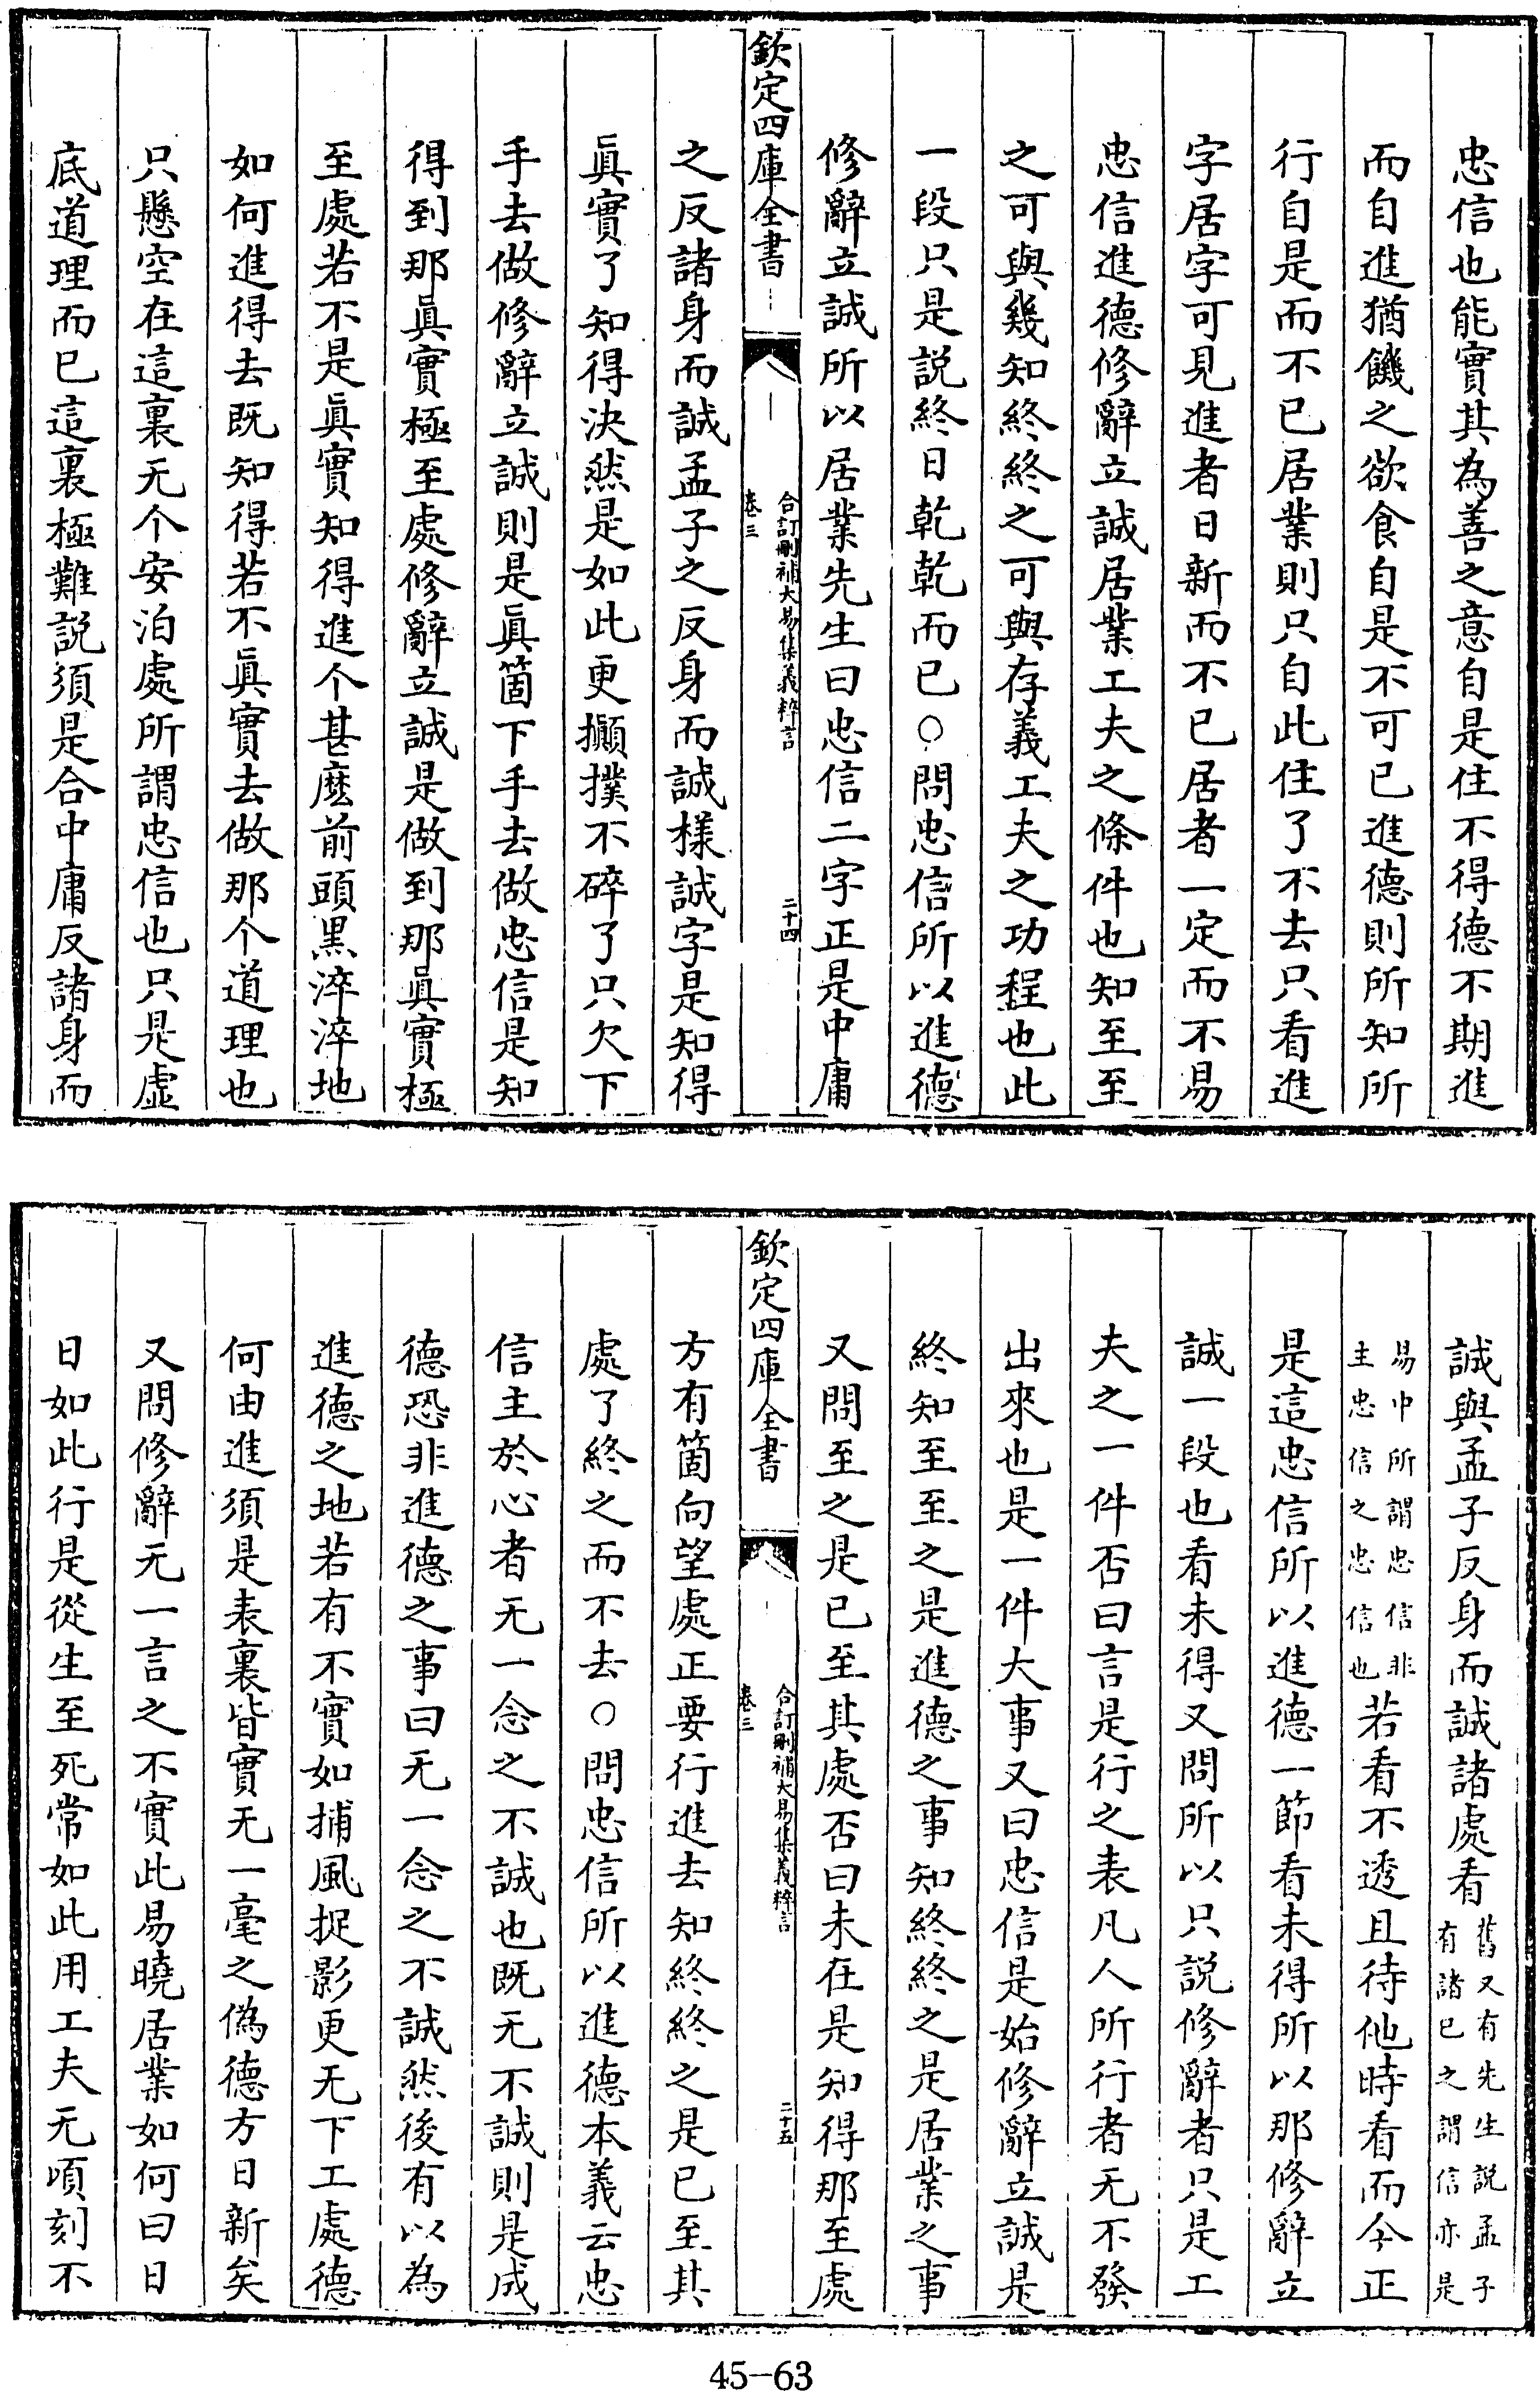 忠信也能實其為善之意自是住不得德不期進
而自進猶饑之欲食自是不可已進德則所知所
行自是而不已居業則只自此住了不去只看進
字居字可見進者日新而不已居者一定而不易
忠信進德修辭立誠居業工夫之條件也知至至
之可與幾知終終之可與存義工夫之功程也此
一段只是説終日乾乾而已○問忠信所以進德
修辭立誠所以居業先生曰忠信二字正是中庸
欽定四庫全書
合訂刪補大易集義粹言
卷三
二十四
之反諸身而誠孟子之反身而誠樣誠字是知得
眞實了知得決然是如此更攧撲不碎了只欠下
手去做修辭立誠則是眞箇下手去做忠信是知
得到那眞實極至處修辭立誠是做到那眞實極
至處若不是眞實知得進个甚麽前頭黒淬淬地
如何進得去既知得若不眞實去做那个道理也
只懸空在這裏无个安泊處所謂忠信也只是虛
底道理而已這裏極難説須是合中庸反諸身而
誠與孟子反身而誠諸處看舊又有先生説孟子
有諸已之謂信亦是
易中所謂忠信非
主忠信之忠信也若看不透且待他時看而今正
是這忠信所以進德一節看未得所以那修辭立
誠一段也看未得又問所以只説修辭者只是工
夫之一件否曰言是行之表凡人所行者无不發
出來也是一件大事又曰忠信是始修辭立誠是
終知至至之是進德之事知終終之是居業之事
又問至之是已至其處否曰未在是知得那至處
欽定四庫全書
合訂刪補大易集義粹言
卷三
二十五
方有箇向望處正要行進去知終終之是已至其
處了終之而不去○問忠信所以進德本義云忠
信主於心者无一念之不誠也既无不誠則是成
德恐非進德之事曰无一念之不誠然後有以為
進德之地若有不實如捕風捉影更无下工處德
何由進須是表裏皆實无一毫之僞德方日新矣
又問修辭无一言之不實此易曉居業如何曰日
日如此行是從生至死常如此用工夫无頃刻不
45-63